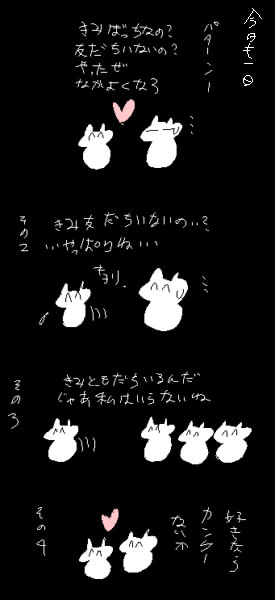 今日も一日
パターン1
きみぼっちなの?
友だちいないの?
やったぜ
なかよくなろ
その2
きみ友だちいないの…?
いやっぱりいいね
その3
きみともだちいるんだ
じゃあ私はいらないね
その4
好きなら
カンケー
ないホ